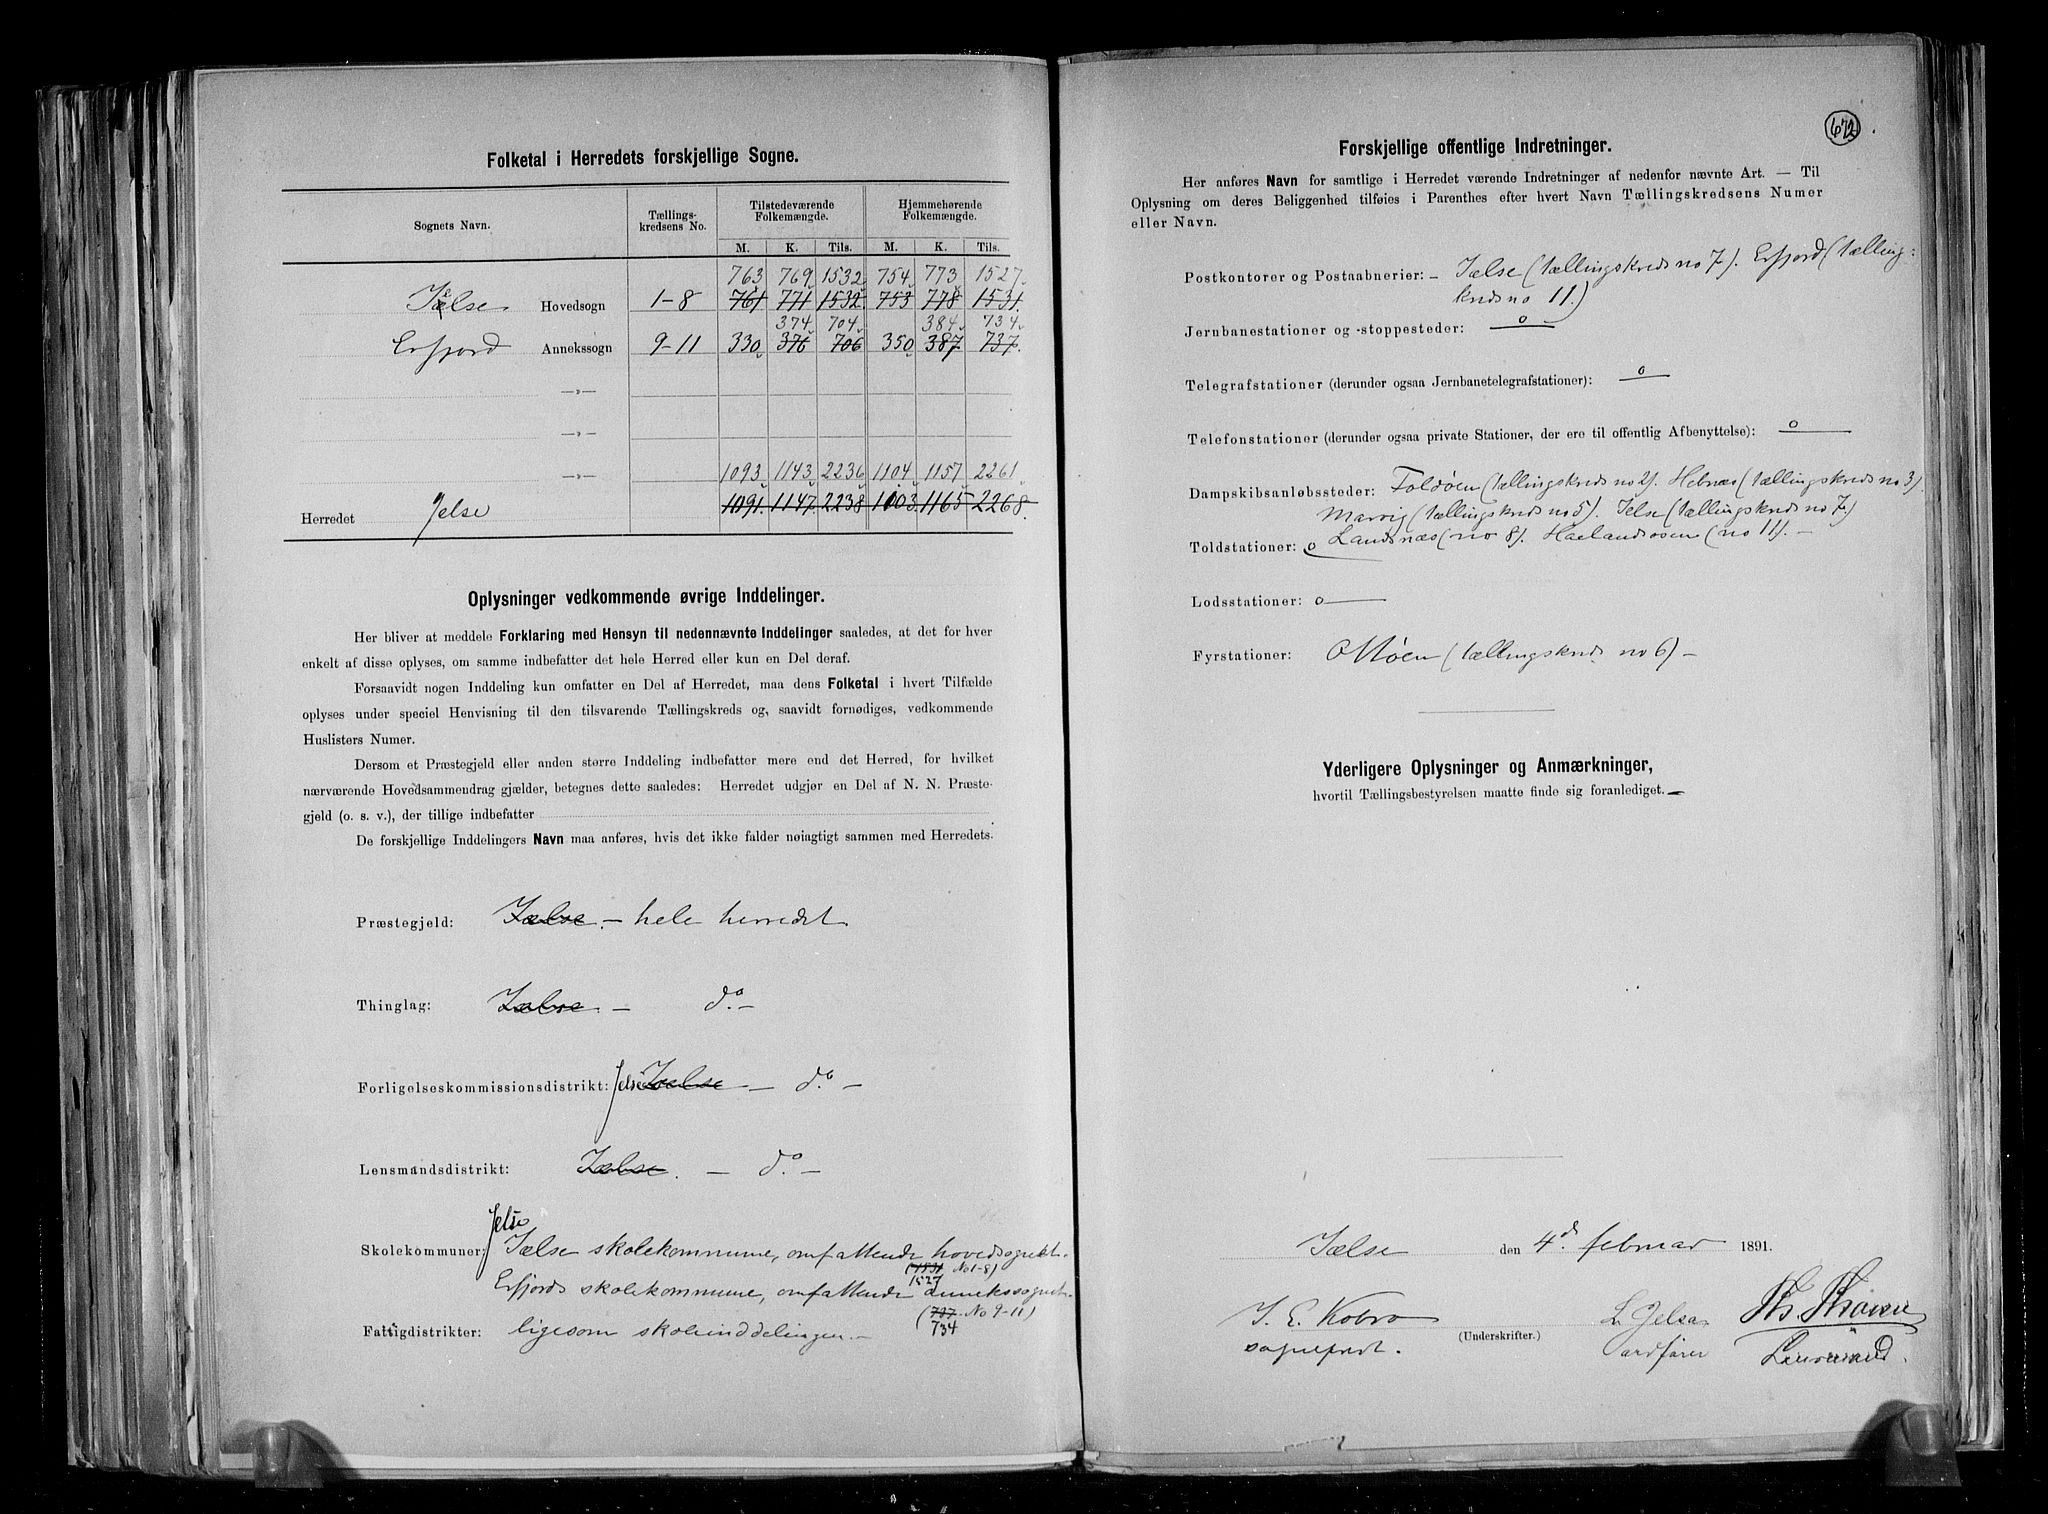 Folketal i Herredets forskjellige Sogne.
Sognets Navn. Tællings- kredsens No. Tilstedeværende Folkemængde. Hjemmehørende Folkemængde.
M. K. Tils. M. K. Tils.
763 769 1532 754 773 1527
Jælse Hovedsogn 1-8 761 771 1532 753 778 1531
374 704 384 734
Erfjord Annekssogn 9-11 330 376 706 350 387 737
—»—
—»—
—»— 1093 1143 2236 1104 1157 2261
Herredet Jelse 1091 1147 2238 1003 1165 2268.
Oplysninger vedkommende øvrige Inddelinger.
Her bliver at meddele Forklaring med Hensyn til nedennævnte Inddelinger saaledes, at det for hver
enkelt af disse oplyses, om samme indbefatter det hele Herred eller kun en Del deraf.
Forsaavidt nogen Inddeling kun omfatter en Del af Herredet, maa dens Folketal i hvert Tilfælde
oplyses under speciel Henvisning til den tilsvarende Tællingskreds og, saavidt fornødiges, vedkommende
Huslisters Numer.
Dersom et Præstegjeld eller anden større Inddeling indbefatter mere end det Herred, for hvilket
nærværende Hovedsammendrag gjælder, betegnes dette saaledes: Herredet udgjør en Del af N. N. Præste-
gjeld (o. s. v.), der tillige indbefatter
De forskjellige Inddelingers Navn maa anføres, hvis det ikke falder nøiagtigt sammen med Herredets.
Præstegjeld: Jælse. – hele herredet
Thinglag: Jælse. – do. –
Forligelseskommissionsdistrikt: Jelse Jælse – do. –
Lensmandsdistrikt: Jælse. – do. –
Jelse
Skolekommuner: Jælse skolekommune, omfattende hovedsognet.
(1531 No 1-8)
1527
Erfjords skolekommune, omfattende annekssognet.
(737 No 9-11)
734
Fattigdistrikter: ligesom skoleinddelingen. –
672
Forskjellige offentlige Indretninger.
Her anføres Navn for samtlige i Herredet værende Indretninger af nedenfor nævnte Art. — Til
Oplysning om deres Beliggenhed tilføies i Parenthes efter hvert Navn Tællingskredsens Numer
eller Navn.
Postkontorer og Postaabnerier: – Jælse (tællingskreds no 7). Erfjord (tælling-
kreds no 11.)
Jernbanestationer og -stoppesteder: 0
Telegrafstationer (derunder ogsaa Jernbanetelegrafstationer): 0
Telefonstationer (derunder ogsaa private Stationer, der ere til offentlig Afbenyttelse): 0
Dampskibsanløbssteder: Foldøen (tællingskreds no 2). Hebnæs (tællingskreds no 3).
Marvig (tællingskreds no 5). Jelse (tællingskreds no 7.)
Landsnæs (no 8). Haalandsosen (no 11). –
Toldstationer: 0
Lodsstationer: 0
Fyrstationer: Ottøen (tællingskreds no 6) –
Yderligere Oplysninger og Anmærkninger,
hvortil Tællingsbestyrelsen maatte finde sig foranlediget. –
Jælse den 4de februar 1891.
J. E. Kobro
sogneprest.
(Underskrifter.)
L. Jelsa
ordfører
Lensmand.